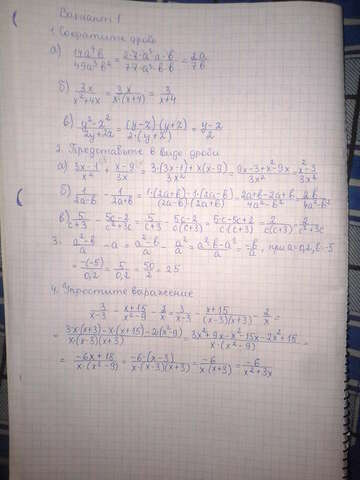 Вариант 1
1. Сократите дробь
а) 14a⁴b / 49a³b² = 2·7·a³·a·b / 7·7·a³·b·b = 2a / 7b
б) 3x / x²+4x = 3x / x·(x+4) = 3 / x+4
в) y²-z² / 2y+2z = (y-z)·(y+z) / 2·(y+z) = y-z / 2
2. Представьте в виде дроби
а) 3x-1 / x² + x-9 / 3x = 3·(3x-1)+x(x-9) / 3x² = 9x-3+x²-9x / 3x² = x²-3 / 3x²
б) 1 / 2a-b - 1 / 2a+b = 1·(2a+b)-1·(2a-b) / (2a-b)·(2a+b) = 2a+b-2a+b / 4a²-b² = 2b / 4a²-b²
в) 5 / c+3 - 5c-2 / c²+3c = 5 / c+3 - 5c-2 / c(c+3) = 5c-5c+2 / c(c+3) = 2 / c(c+3) = 2 / c²+3c
3. a²-b / a - a = a²-b / a - a² / a = a²-b-a² / a = -b / a, при a=0,2, b=-5
= -(-5) / 0,2 = 5 / 0,2 = 50 / 2 = 25
4. Упростите выражение
3 / x-3 - x+15 / x²-9 - 2 / x = 3 / x-3 - x+15 / (x-3)(x+3) - 2 / x =
= 3x·(x+3)-x·(x+15)-2(x²-9) / x·(x-3)(x+3) = 3x²+9x-x²-15x-2x²+18 / x·(x²-9) =
= -6x+18 / x·(x²-9) = -6·(x-3) / x·(x-3)(x+3) = -6 / x·(x+3) = -6 / x²+3x